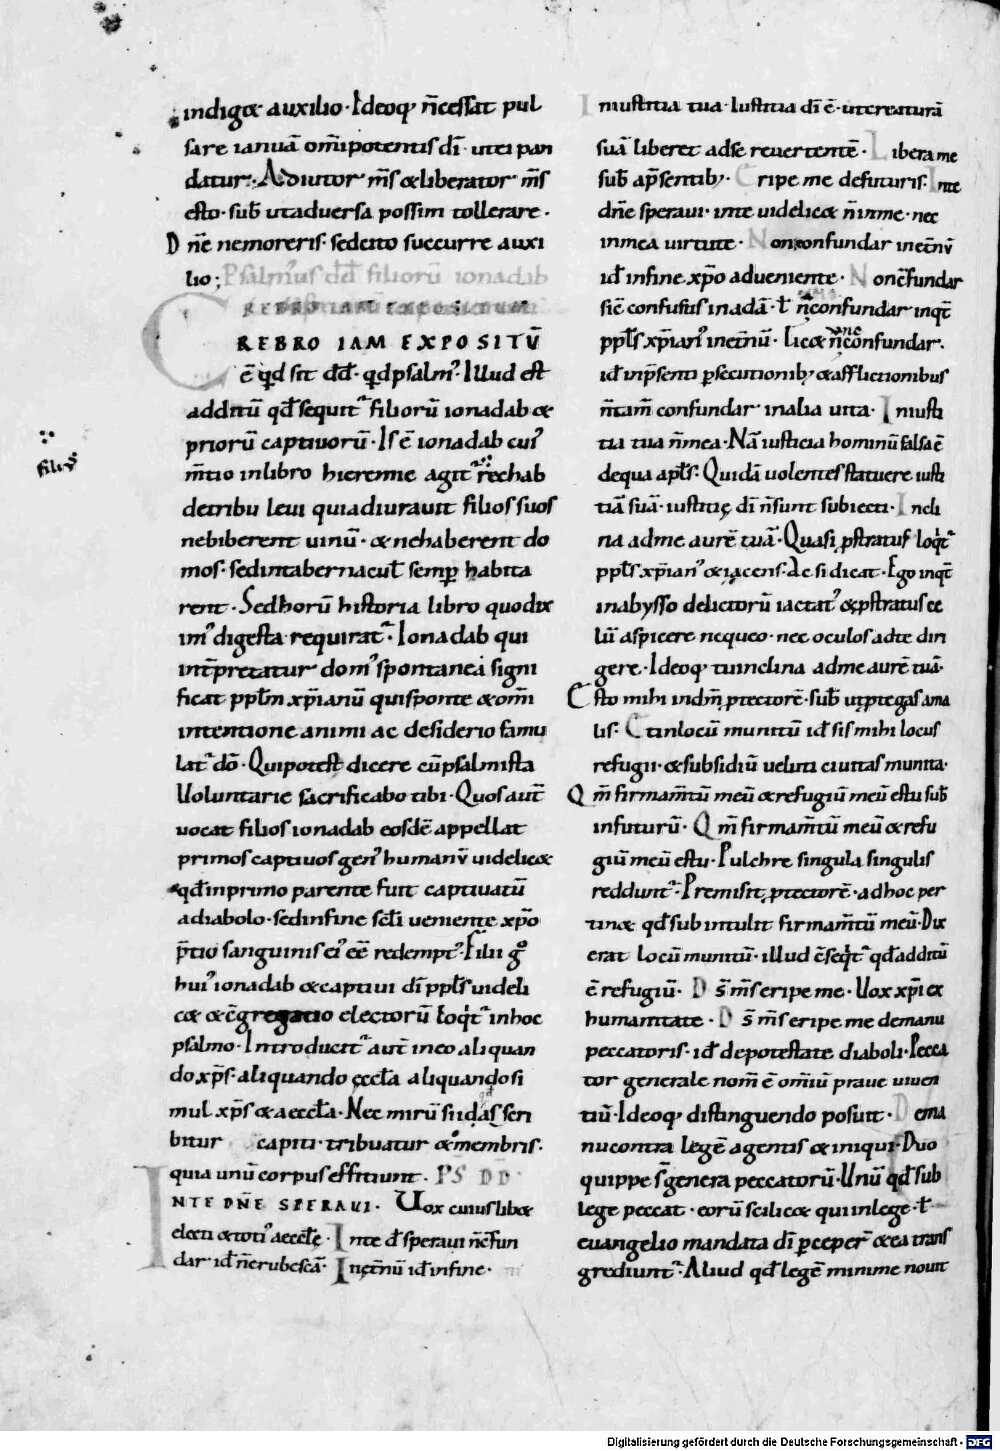 indigęt auxilio · Ideoq; n̄cessat pul
sare ianuā om̄ipotentis dī · utei pan
datur · Adiutor m̄s &liberator m̄s
esto · sub̄ utaduersa possim tollerare ·
Dn̄e nemoreris · sedcito succurre auxi
lio ; Psalmus dd̄ filiorū ionadab
CREBRO IAM EXPOSITŪ
ē qd̄ sit dd̄ · qd̄psalm' · Illud est
additū qd̄sequit' filiorū ionadab &
priorū captiuorū · Is ē ionadab cui'
m̄tio inlibro hieremie agit' rechab
filius
detribu leui quiadiurauit filios suos
nebiberent uinū · & nehaberent do
mos · sedintabernacul̄ semp̱ habita
rent · Sedhorū historia libro quodix
im' digesta requirat' · Ionadab qui
int̄pretatur dom' spontanea signi
ficat ppl̄m xp̄ianū quisponte & om̄i
intentione animi ac desiderio famu
lat' dō · Quipotest dicere cūpsalmista
Uoluntarie sacrificabo tibi · Quos aut̄
uocat filios ionadab eosdē appellat
primos captiuos gen' humanū uidelic&
qd̄inprimo parente fuit captiuatū
adiabolo · sedinfine sc̄li ueniente xp̄o
p̄tio sanguinis ei' eē redempt' · Filii g°
hui' ionadab &captiui dī ppl̄s uideli
c& &c̄gregatio electorū loq̇t' inhoc
psalmo · Introducit' aut̄ ineo aliquan
do xp̄s · aliquando ęccl̄a aliquando si
mul xp̄s &aeccl̄a · Nec mirū si idas scri
bitur capiti · tribuatur & membris ·
quia unū corpus efficiunt · PS DD
INTE DN̄E SPERAUI · Uox cuiuslib&
electi &toti' aeccl̄ę · Inte d̄ speraui nc̄fun
dar id̄ n̄erubescā · Inęt̄nū id̄ infine ·
Iniustitia tua · Iustitia dī ē · utcreaturā
suā liber& adse reuertentē · Libera me
sub̄ ap̄sentib; · Eripe me defuturis · Inte
dn̄e speraui · inte uidelic& n̄inme · nec
inmea uirtute · Non confundar inet̄nū
id̄ infine xp̄o adueniente · Nonc̄fundar
sic̄ confusus inadā · l̄ n̄confundar inqt̄
ppl̄s xp̄ian' inet̄nū · Lic& n̄confundar ·
id̄ inp̄senti ꝑsecutionib; &afflictionibus
n̄tam̄ confundar inalia uita · Iniusti
tia tua n̄mea · Nā iusticia hominū falsa ē
dequa apl̄s · Quidā uolentes statuere iusti
tiā suā · iustitię dī n̄sunt subiecti · Incli
na adme aurē tuā · Quasi ꝓstratus loq̇t'
ppl̄s xp̄ian' &iacens · Ac si dicat · Ego inqt̄
inabysso delictorū iactat' &ꝓstratus ce
lū aspicere nequeo · nec oculos adte diri
gere · Ideoq; tuinclina adme aurē tuā ·
Esto mihi indm̄ ꝓtectorē · sub̄ utꝓtegas ama
lis · Etinlocū munitū id̄ sis mihi locus
refugii · &subsidiū ueluti ciuitas munita ·
Qm̄ firmam̄tū meū &refugiū meū estu sub̄
infuturū · Qm̄ firmam̄tū meū &refu
giū meū estu · Pulchre singula singulis
reddunt' · Premisit ꝓtectorē · adhoc per
tin& qd̄ subintulit firmam̄tū meū · Dix
erat locū munitū · illud c̄seq̇t' qd̄additū
ē refugiū · Ds̄ m̄s eripe me · Uox xp̄i ex
humanitate · Ds̄ m̄s eripe me demanu
peccatoris · id̄ depotestate diaboli · Pecca
tor generale nom̄ ē om̄iū praue uiuen
tiū · Ideoq; distinguendo posuit · Dema
nucontra legē agentis &iniqui · Duo
quippe s̄ genera peccatorū · Unū qd̄ sub
lege peccat · eorū scilic& qui inlege · l̄
euangelio mandata dī ꝑceper̄ &ea trans
grediunt' · Aliud qd̄ legē minime nouit
Digitalisierung gefördert durch die Deutsche Forschungsgemeinschaft - DFG